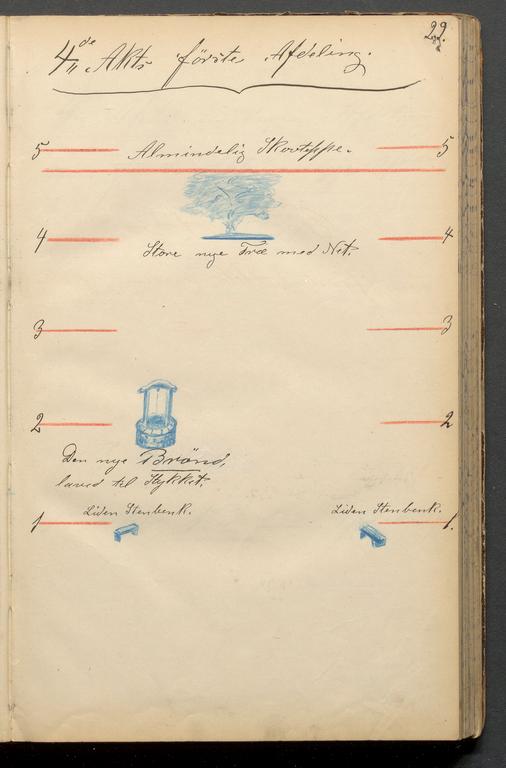 22.
4de Akts förste Afdeling.
5 Almindelig Skovteppe. 5
4 4
Store nye Træ med Net.
3 3
2 2
Den nye Brönd,
laved til Stykket.
Liden Stenbenk. Liden Stenbenk.
1 1.